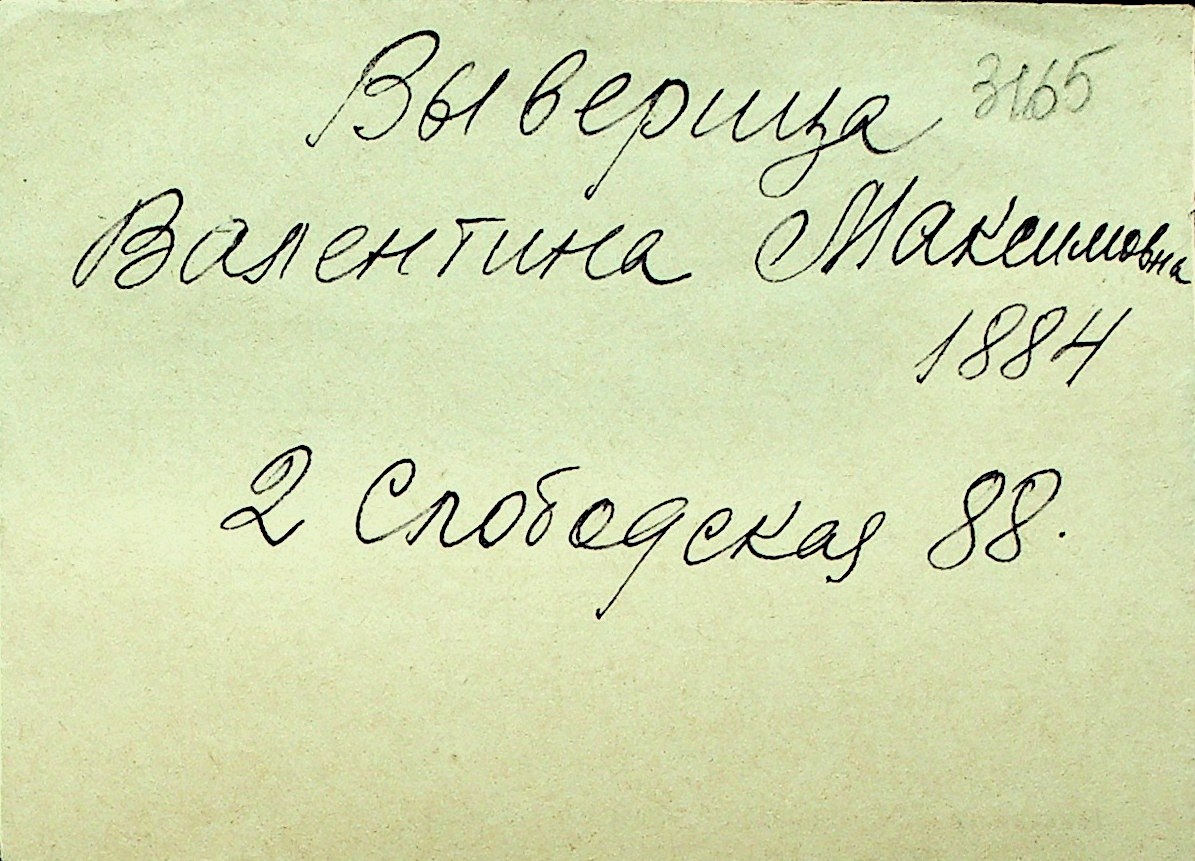 Выверица 3165
Валентина Максимовна
1884
2 Слободская 88.